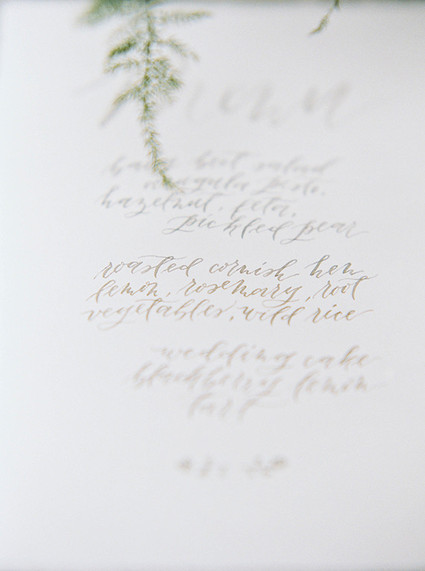 baby beet salad
arugula pesto,
hazelnut, feta,
pickled pear
roasted cornish hen
lemon, rosemary, root
vegetables, wild rice
wedding cake
blackberry lemon
tart